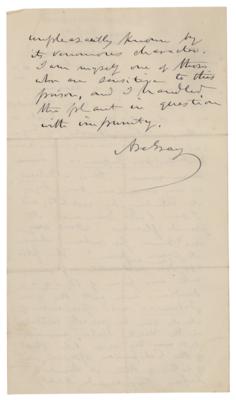 unpleasantly known by
its venomous character.
I am myself one of those
who are sensitive to this
poison, and I handled
the plant in question
with impunity.
Asa Gray